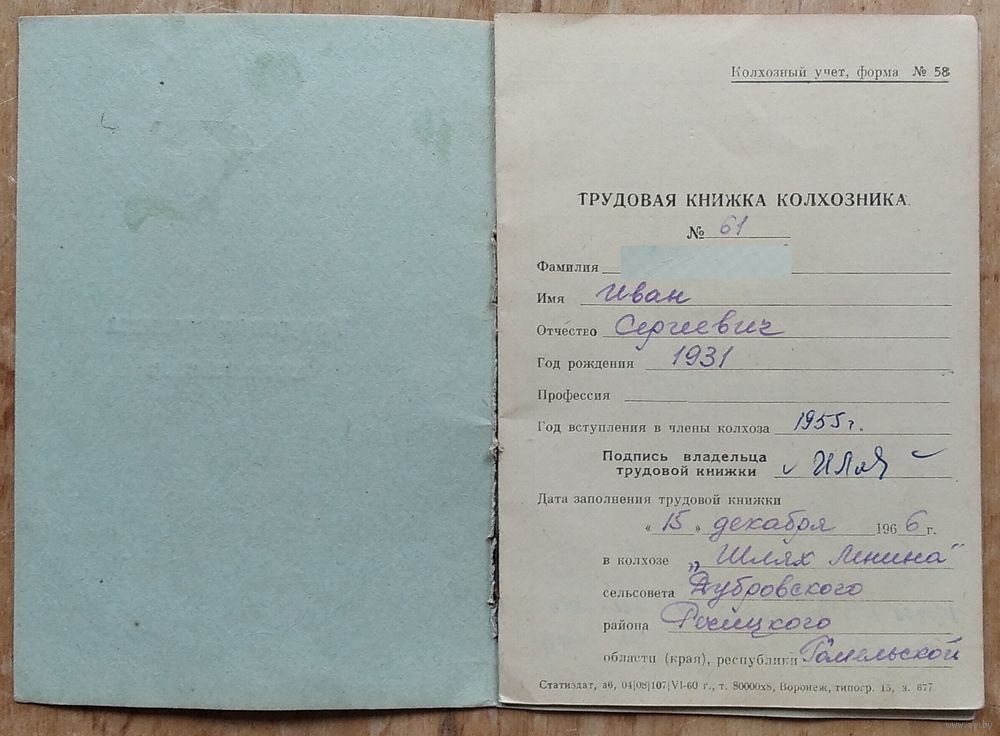 Колхозный учет, форма № 58
ТРУДОВАЯ КНИЖКА КОЛХОЗНИКА
№ 61
Фамилия
Имя Иван
Отчество Сергеевич
Год рождения 1931
Профессия
Год вступления в члены колхоза 1955 г.
Подпись владельца
трудовой книжки
Дата заполнения трудовой книжки
« 15 » декабря 1966 г.
в колхозе „Шлях Ленина"
сельсовета Дубровского
района
области (края), республики Гомельской
Статиздат, а6, 04|08|107|VI-60 г., т. 80000х8, Воронеж, типогр. 15, з. 677